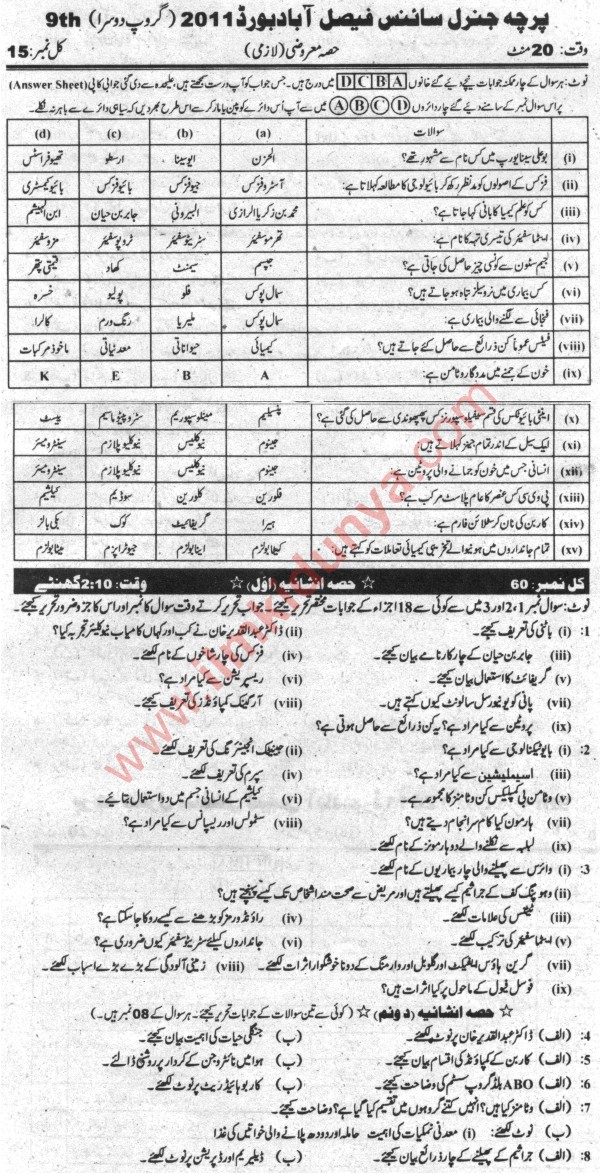 پرچہ جنرل سائنس فیصل آباد بورڈ 2011 (گروپ دوسرا) 9th
وقت: 20 منٹ حصہ معروضی (لازمی) کل نمبر: 15
نوٹ: ہر سوال کے چار ممکنہ جوابات نیچے دیے گئے خانوں A B C D میں درج ہیں۔ جس جواب کو آپ درست سمجھتے ہیں، علیحدہ سے دی گئی جوابی کاپی (Answer Sheet)
پر اس سوال نمبر کے سامنے دیے گئے چار دائروں A B C D میں سے آپ اُس دائرے کو پین یا مارکر سے اس طرح بھر دیں کہ سیاہی دائرے سے باہر نہ نکلے۔
سوالات (a) (b) (c) (d)
(i) بوعلی سینا یورپ میں کس نام سے مشہور تھے؟ الحزن ایوسینا ارسطو تھیوفراسٹس
(ii) فزکس کے اصولوں کو مدنظر رکھ کر بائیولوجی کا مطالعہ کہلاتا ہے: آسٹروفزکس جیوفزکس بائیوفزکس بائیوکیمسٹری
(iii) کس کو علم کیمیا کا بانی کہا جاتا ہے؟ محمد بن زکریا الرازی البیرونی جابر بن حیان ابن الہیشم
(iv) ایٹماسفیئر کی تیسری تہہ کا نام ہے: تھرموسفیئر سٹریٹوسفیئر ٹروپوسفیئر مزوسفیئر
(v) جیم سٹون سے کونسی چیز حاصل کی جاتی ہے؟ جپسم سیمنٹ کھاد قیمتی پتھر
(vi) کس بیماری میں نروسیلز تباہ ہو جاتے ہیں؟ سمال پوکس فلو پولیو خسرہ
(vii) فنجائی سے لگنے والی بیماری ہے: سمال پوکس ملیریا رنگ ورم کالرا
(viii) فیٹس عموماً کن ذرائع سے حاصل کئے جاتے ہیں؟ کیمیائی حیواناتی معدنیاتی ماخوذ مرکبات
(ix) خون کے جمنے میں مددگار وٹامن ہے: A B E K
(x) اینٹی بائیوٹکس کی قسم سیفیلوسپورنز کس پھپھوندی سے حاصل کی گئی ہے؟ پنسیلیم سیفیلوسپوریم سٹروپٹومائسیم ییسٹ
(xi) ایک سیل کے اندر تمام جینز کہلاتے ہیں: جینوم نیوکلیس نیوکلیوپلازم سینٹرومیئر
(xii) انسانی جس میں خون کو جمانے والی پروٹین ہے: جینوم نیوکلیس نیوکلیوپلازم سینٹرومیئر
(xiii) پی وی سی کس عنصر کا عام پلاسٹ مرکب ہے؟ فلورین کلورین سوڈیم کیلشیم
(xiv) کاربن کی نان کرسٹلائن فارم ہے: ہیرا گریفائیٹ کوک بکی بالز
(xv) تمام جانداروں میں ہونیوالے تخریبی کیمیائی تعاملات کو کہتے ہیں: کیٹابولزم اینابولزم جیوٹراپزم میٹابولزم
کل نمبر: 60 ☆ حصہ انشائیہ (اوّل) ☆ وقت: 2:10 گھنٹے
نوٹ: سوال نمبر 1، 2 اور 3 میں سے کوئی سے 18 اجزاء کے جوابات مختصر تحریر کیجئے۔ جواب تحریر کرتے وقت سوال کا نمبر اور اس کا جزو ضرور تحریر کیجئے۔
1: (i) باٹنی کی تعریف کیجئے۔ (ii) ڈاکٹر عبدالقدیر خان نے کب اور کہاں کامیاب نیوکلیئر تجربہ کیا؟
(iii) جابر بن حیان کے چار کارنامے بیان کیجئے۔ (iv) فزکس کی چار شاخوں کے نام لکھئے۔
(v) گریفائٹ کا استعمال بیان کیجئے۔ (vi) ریسپریشن سے کیا مراد ہے؟
(vii) پانی کو یونیورسل سالونٹ کیوں کہتے ہیں۔ (viii) آرگینک کمپاؤنڈز کی تعریف کیجئے۔
(ix) پروٹین سے کیا مراد ہے؟ یہ کن ذرائع سے حاصل ہوتی ہے؟
2: (i) بائیوٹیکنالوجی سے کیا مراد ہے؟ (ii) جینیٹک انجینئرنگ کی تعریف لکھئے۔
(iii) اسیمیلیشن سے کیا مراد ہے؟ (iv) سپرم کی تعریف لکھئے۔
(v) وٹامن بی کمپلیکس کن وٹامنز کا مجموعہ ہے؟ (vi) کیلشیم کے انسانی جسم میں دو استعمال بتائیے۔
(vii) ہارمون کیا کام سرانجام دیتے ہیں؟ (viii) سٹمولس اور رسپانس سے کیا مراد ہے؟
(ix) لبلبہ سے نکلنے والے دو ہارمونز کے نام لکھئے۔
3: (i) وائرس سے پھیلنے والی چار بیماریوں کے نام لکھئے۔
(ii) وہوپنگ کف کے جراثیم کیسے پھیلتے ہیں اور مریض سے صحت مند اشخاص تک کیسے پہنچتے ہیں؟
(iii) ٹیٹنس کی علامات لکھئے۔ (iv) راؤنڈ ورمز کو بڑھنے سے کیسے روکا جا سکتا ہے؟
(v) ایٹماسفیئر کی ترکیب لکھئے۔ (vi) جانداروں کیلئے سٹریٹوسفیئر کیوں ضروری ہے؟
(vii) گرین ہاؤس ایفیکٹ اور گلوبل وارمنگ کے دو ناخوشگوار اثرات لکھئے۔ (viii) زمینی آلودگی کے بڑے بڑے اسباب لکھئے۔
(ix) فوسل فیول کے ماحول پر کیا اثرات ہیں؟
☆ حصہ انشائیہ (دوئم) ☆ (کوئی سے تین سوالات کے جوابات تحریر کیجئے۔ ہر سوال کے 08 نمبر ہیں۔)
4: (الف) ڈاکٹر عبدالقدیر خان پر نوٹ لکھئے۔ (ب) جنگلی حیات کی اہمیت بیان کیجئے۔
5: (الف) کاربن کے کمپاؤنڈ کی اقسام بیان کیجئے۔ (ب) ہوا میں نائٹروجن کے کردار پر روشنی ڈالئے۔
6: (الف) ABO بلڈ گروپ سسٹم کی وضاحت کیجئے۔ (ب) کاربوہائیڈریٹ پر نوٹ لکھئے۔
7: (الف) وٹامنز کیا ہیں؟ انہیں کتنے گروہوں میں تقسیم کیا گیا ہے؟ وضاحت کیجئے۔
(ب) نوٹ لکھئے: (i) معدنی نمکیات کی اہمیت حاملہ اور دودھ پلانے والی خواتین کی غذا
8: (الف) جراثیم کے پھیلنے کے چار ذرائع بیان کیجئے۔ (ب) ڈیلیریم اور ڈپریشن پر نوٹ لکھئے۔
www.ilmkidunya.com